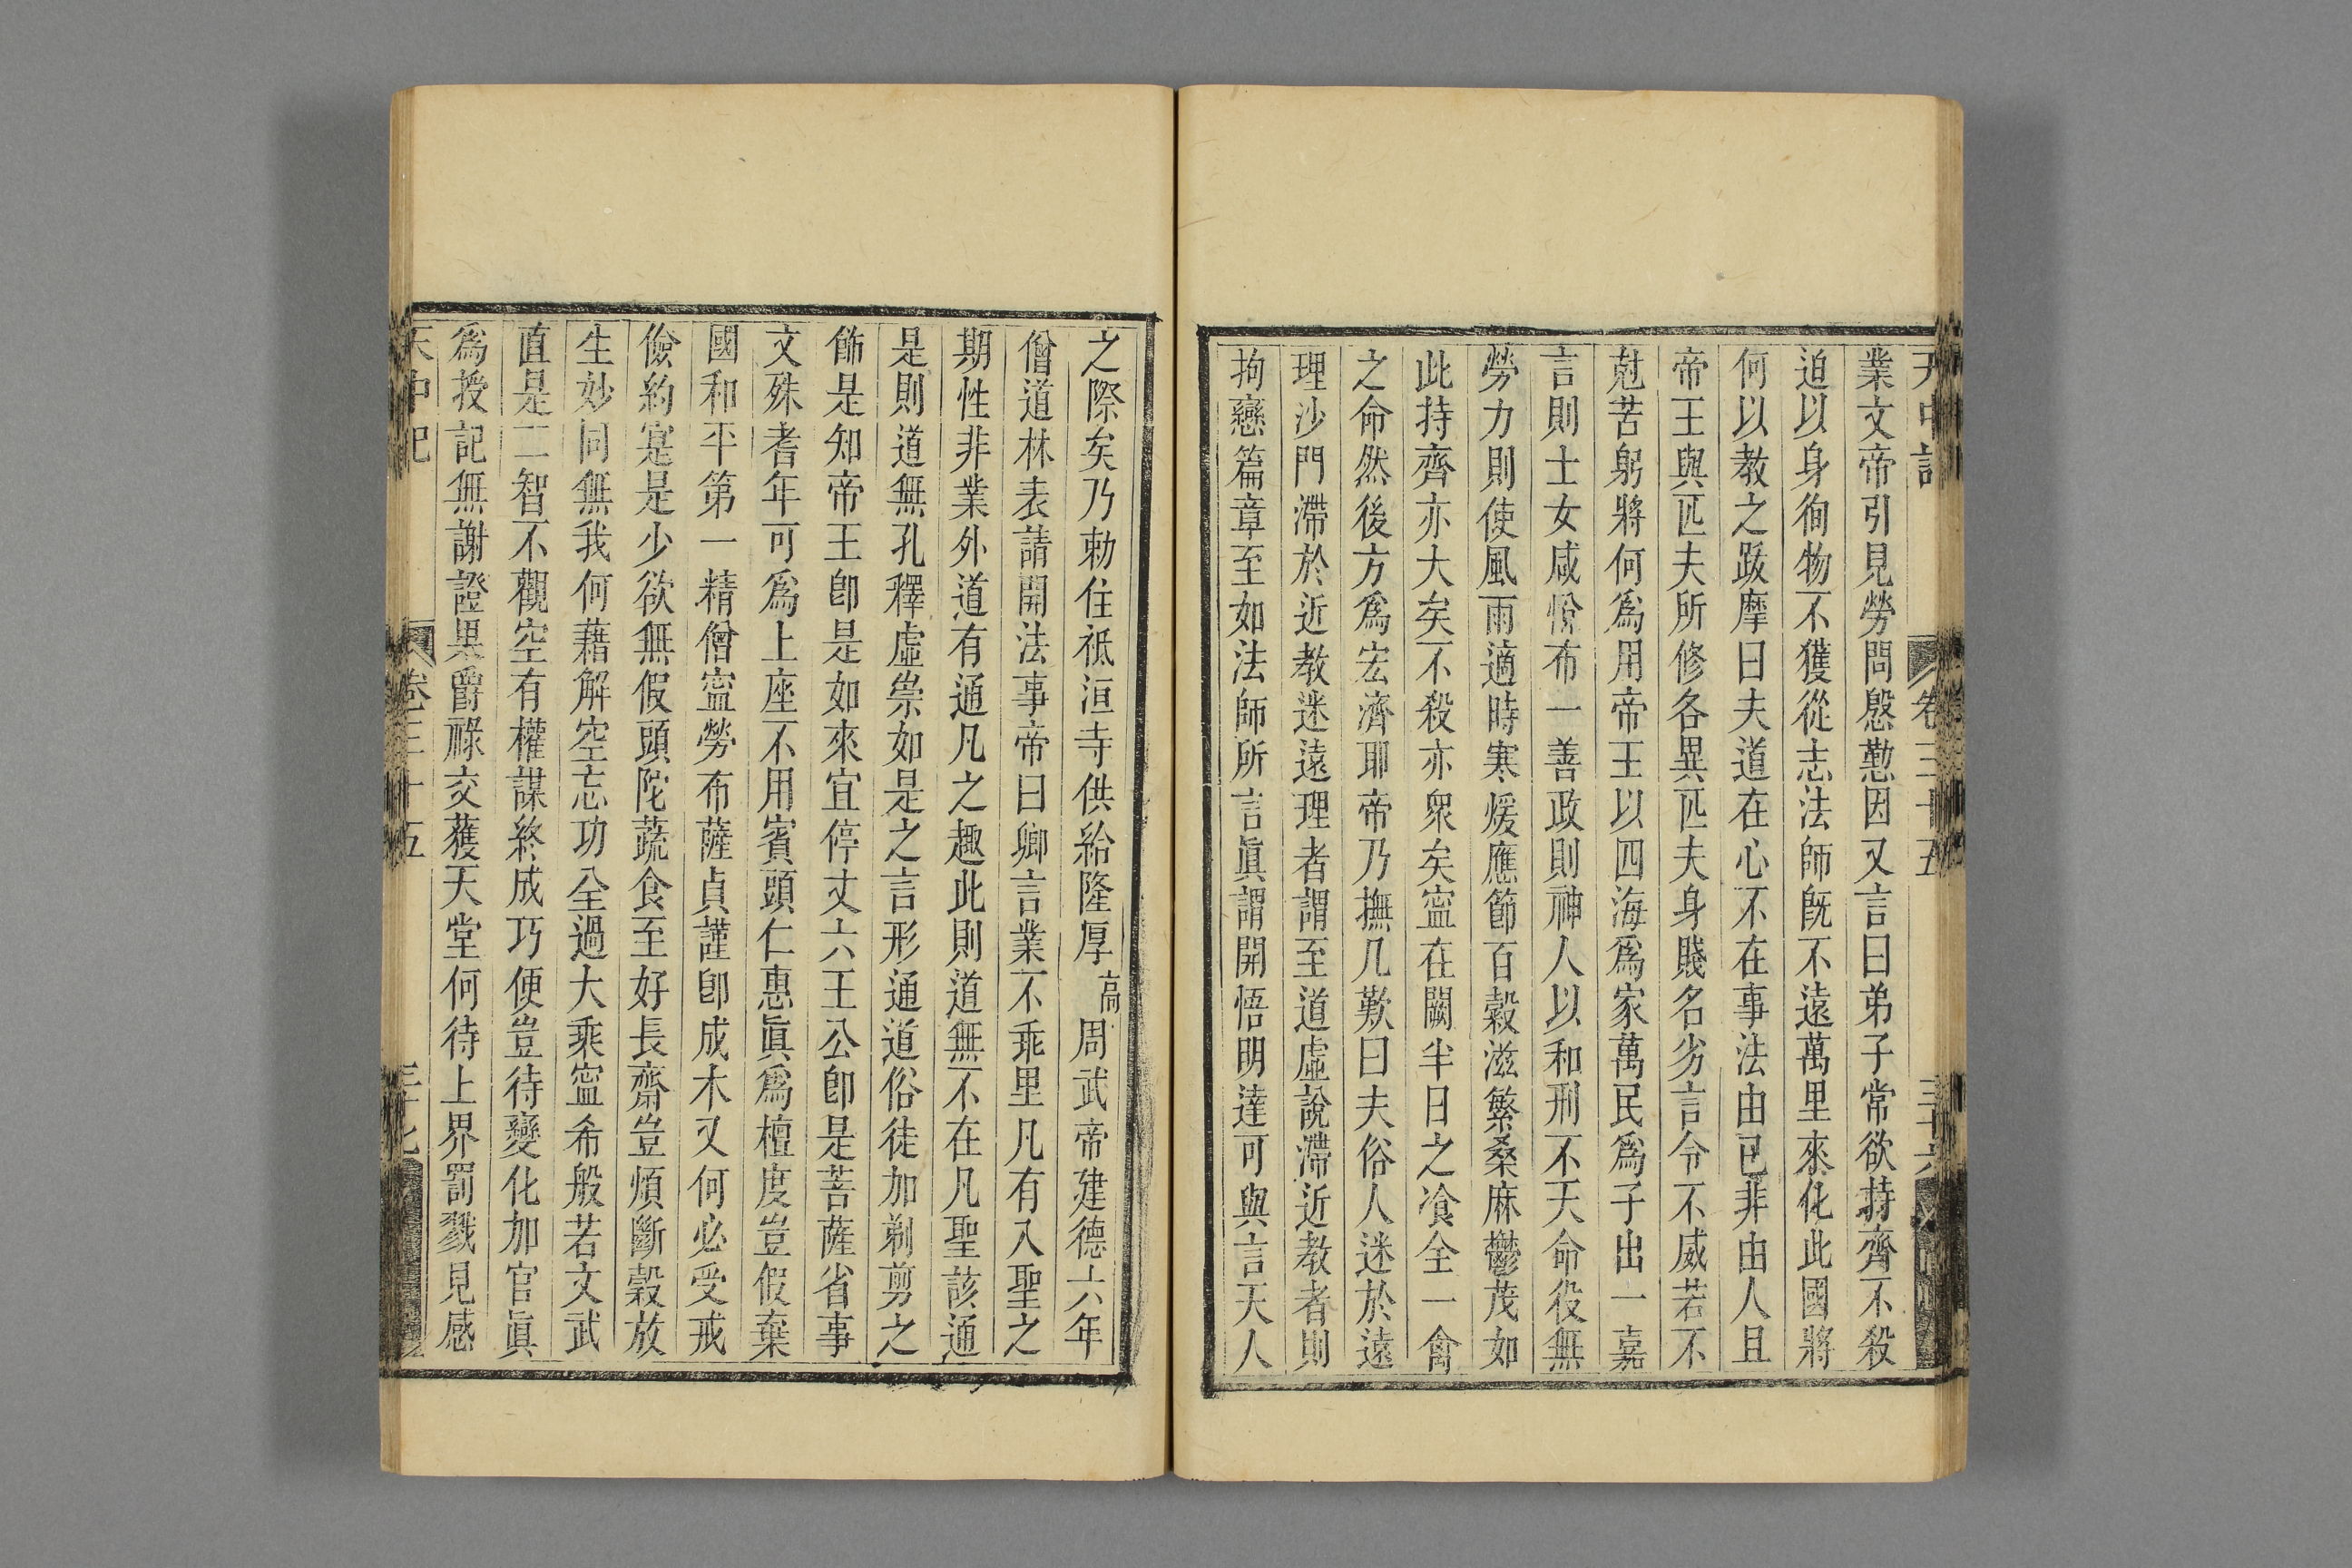 天中記 卷三十五 三十六
業文帝引見勞問慇懃因又言曰弟子常欲持齊不殺
迫以身徇物不獲從志法師旣不遠萬里來化此國將
何以教之跋摩曰夫道在心不在事法由已非由人且
帝王與匹夫所修各異匹夫身賤名劣言令不威若不
尅苦躬將何爲用帝王以四海爲家萬民爲子出一嘉
言則士女咸恱布一善政則神人以和刑不夭命役無
勞力則使風雨適時寒煖應節百榖滋繁桑麻鬱茂如
此持齊亦大矣不殺亦衆矣寍在闕半日之飡全一禽
之命然後方爲宏濟耶帝乃撫几歎曰夫俗人迷於遠
理沙門滯於近教迷遠理者謂至道虛說滯近教者則
拘戀篇章至如法師所言眞謂開悟明達可與言天人
之際矣乃勅住祇洹寺供給隆厚高周武帝建德六年
僧道林表請開法事帝曰卿言業不乖里凡有入聖之
期性非業外道有通凡之趣此則道無不在凡聖該通
是則道無孔釋虛崇如是之言形通道俗徒加剃剪之
飾是知帝王卽是如來宜停丈六王公卽是菩薩省事
文殊耆年可爲上座不用賓頭仁惠眞爲檀度豈假棄
國和平第一精僧寍勞布薩貞謹卽成木叉何必受戒
儉約寔是少欲無假頭陀蔬食至好長齋豈煩斷榖放
生妙同無我何藉解空忘功全過大乘寍希般若文武
直是二智不觀空有權謀終成巧便豈待變化加官眞
爲授記無謝證果爵祿交蒦天堂何待上界罰戮見感
天中記 卷三十五 三十七